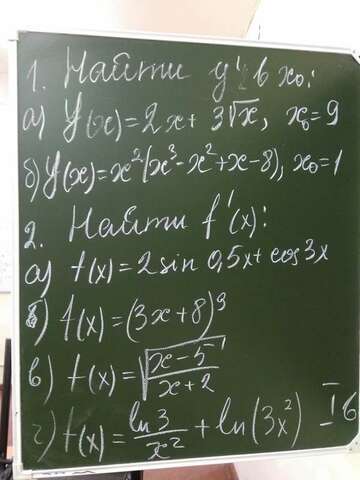 1. Найти y' в x₀:
а) y(x)=2x+3√x, x₀=9
б) y(x)=x²(x³-x²+x-8), x₀=1
2. Найти f'(x):
а) f(x)=2sin 0,5x+cos3x
б) f(x)=(3x+8)⁹
в) f(x)=√((x-5)/(x+2))
г) f(x)=ln3/x²+ln(3x²) Iб